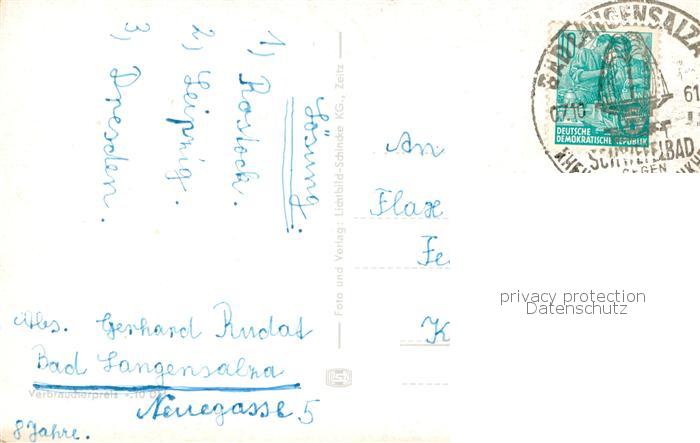 Lösung:
1) Rostock.
2) Leipzig.
3) Dresden.
Abs. Gerhard Rudat
Bad Langensalza
Neuegasse 5
8 Jahre.
Verbraucherpreis -.10 DM
Foto und Verlag: Lichtbild-Schincke KG., Zeitz
BAD LANGENSALZA
07.10. 61
SCHWEFELBAD
GEGEN
10
DEUTSCHE
DEMOKRATISCHE REPUBLIK
An
Flax
Fe
K
privacy protection
Datenschutz